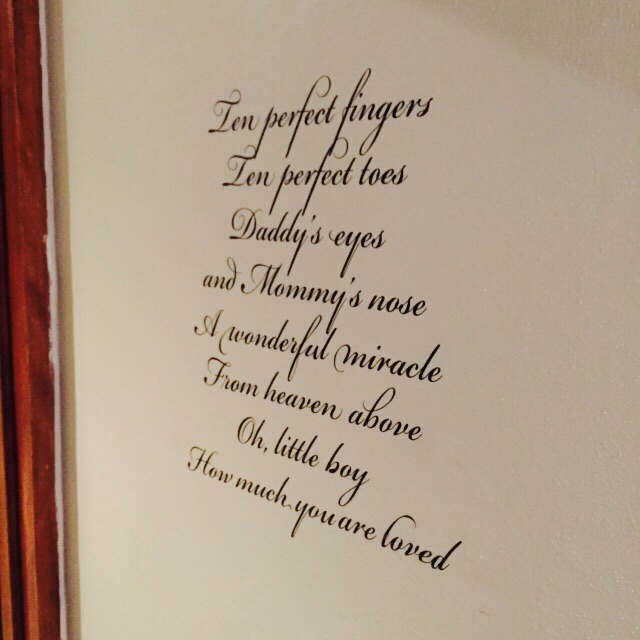 Ten perfect fingers
Ten perfect toes
Daddy's eyes
and Mommy's nose
A wonderful miracle
From heaven above
Oh, little boy
How much you are loved